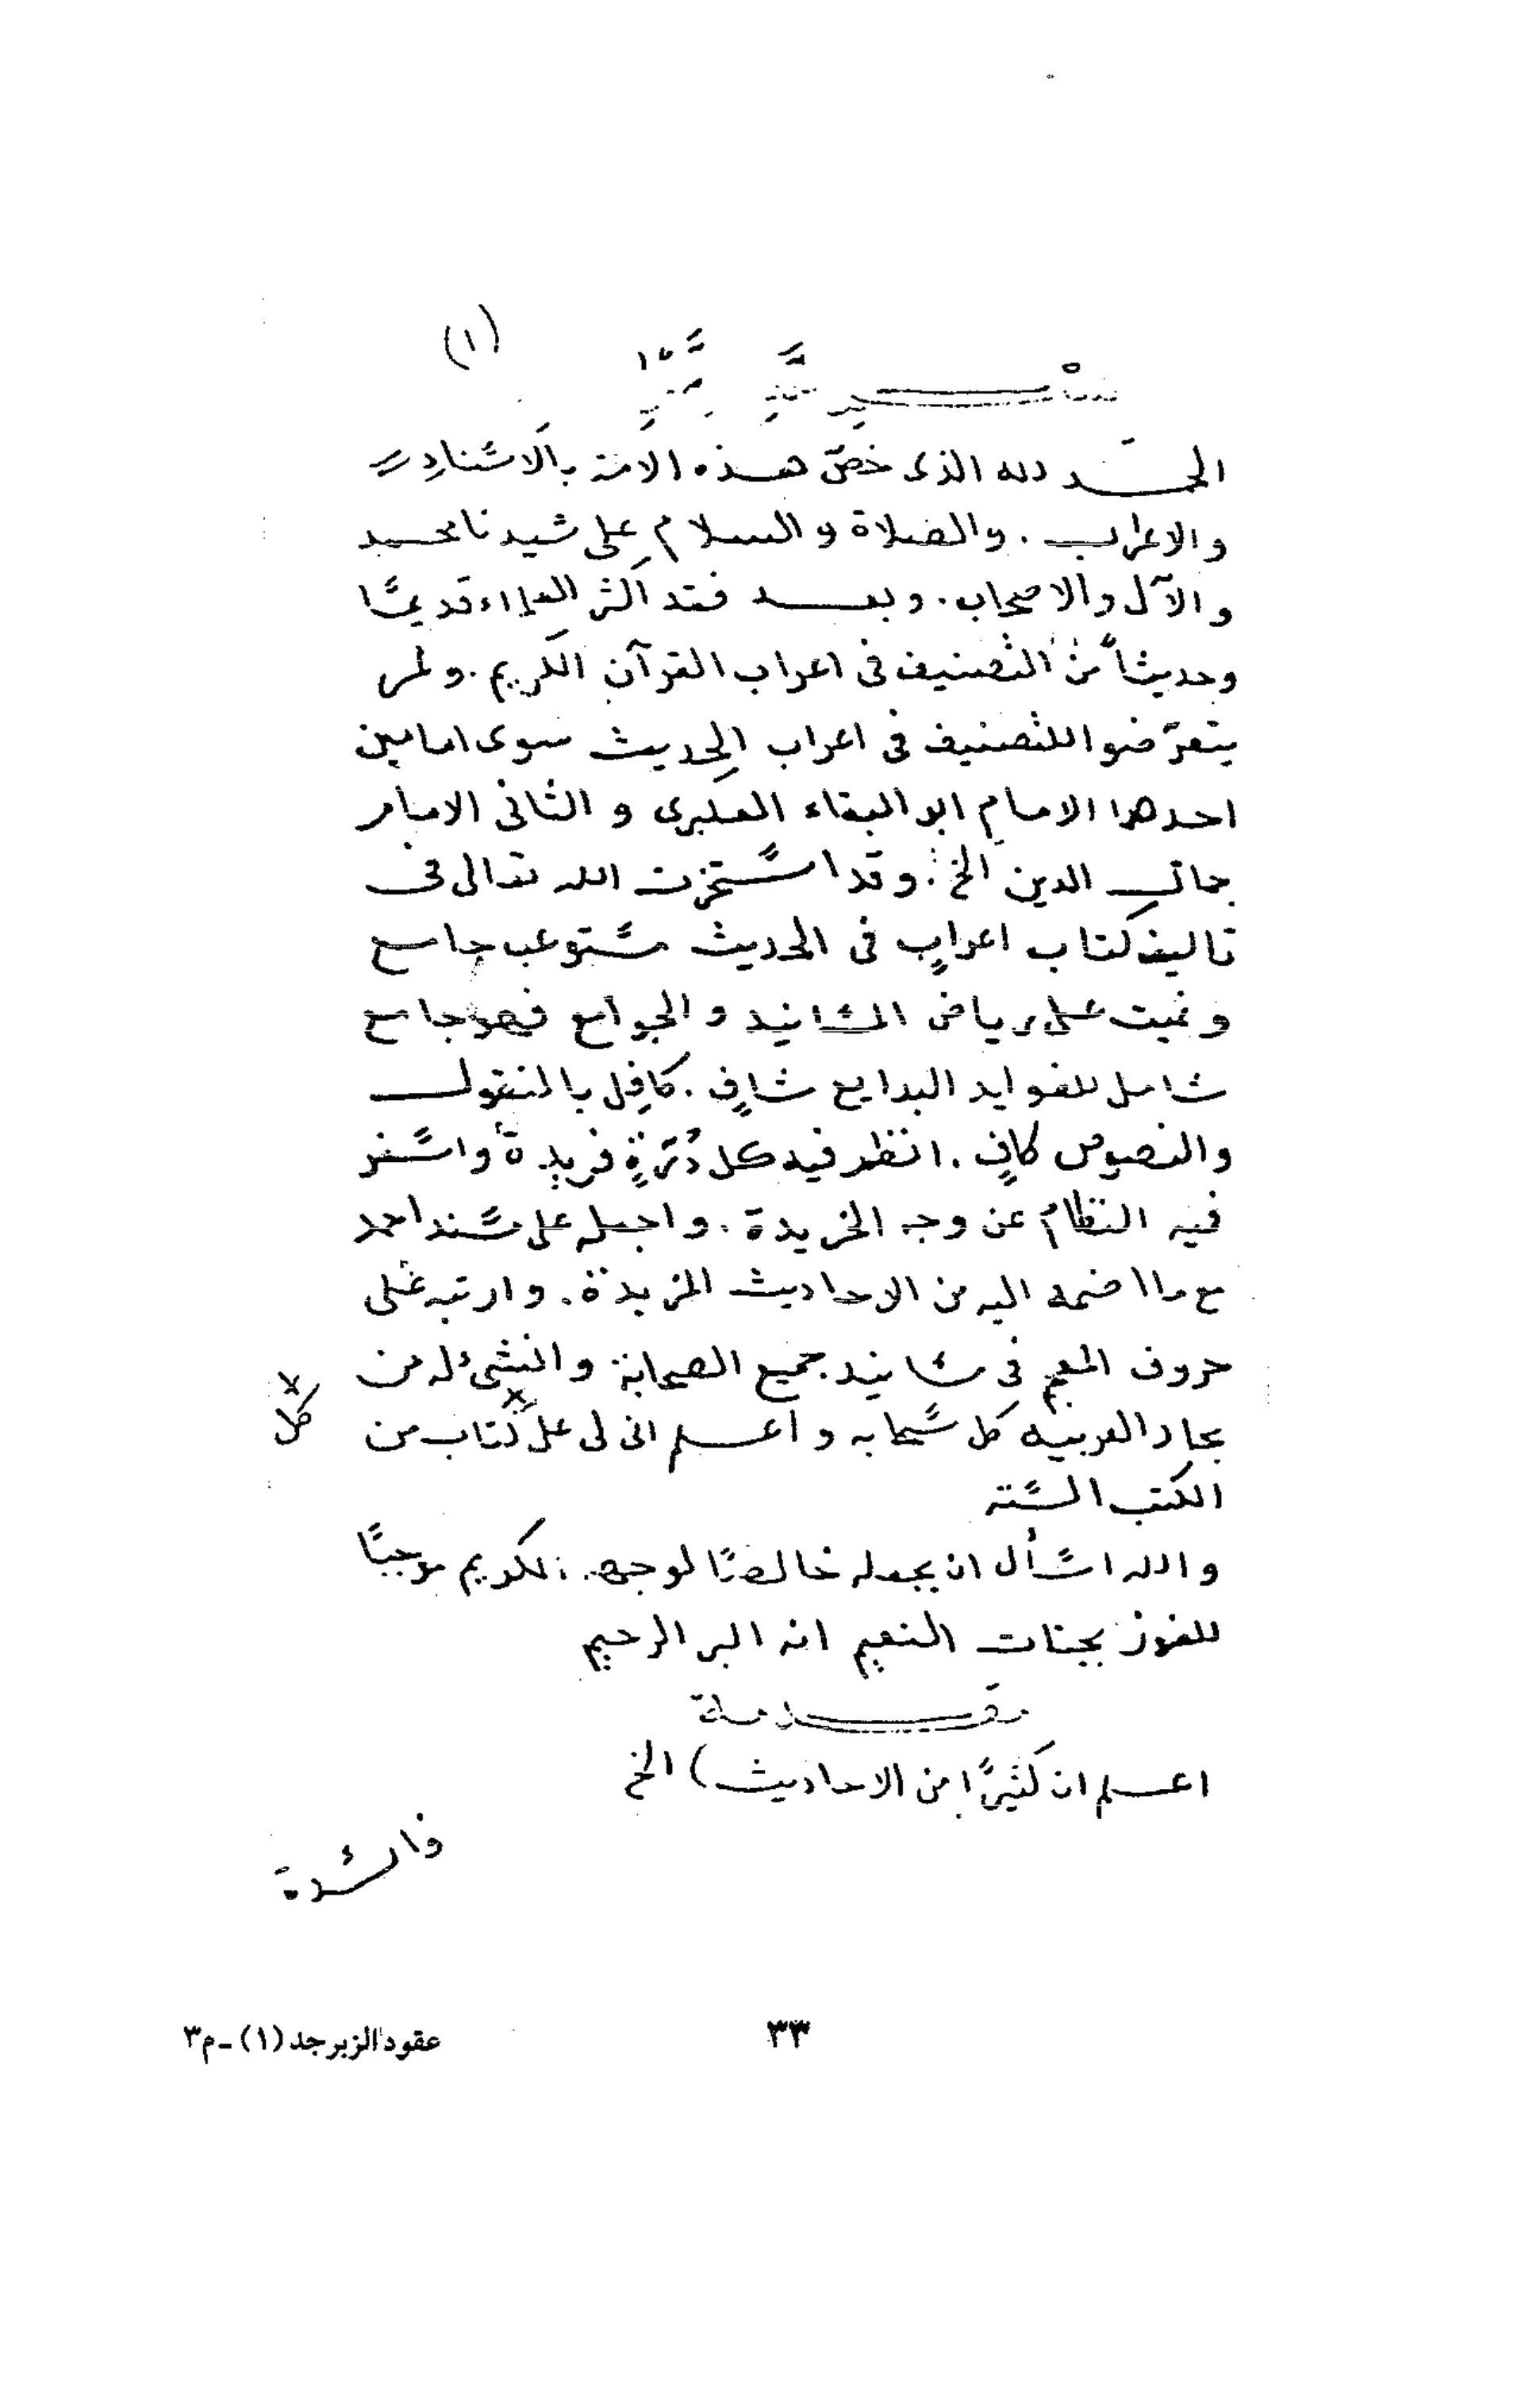 (١)
الحمد لله الذى خصّ هذه الامة بالاسنادِ
والاعراب . والصلاة والسلام على سيدنا محمد
والآل والاصحاب . وبعد فقد اكثر العلماء قديمًا
وحديثاً من التصنيف فى اعراب القرآن الكريم . ولم
يتعرّضوا للتصنيف فى اعراب الحديث سوى امامين
احدهما الامام ابو البقاء العكبرى و الثانى الامام
جمال الدين الخ . وقد استخرت الله تعالى فى
تاليف كتاب اعرابٍ فى الحديث مستوعب جامع
وغيث على رياض المسانيد و الجوامع فهو جامع
شامل للفوايد البدايع شافٍ . كافِل بالمنقول
والنصوص كافٍ . انظر فيه كل دُرّةٍ فريدٍة واسفر
فيه النظام عن وجه الخريدة . واجعله على مسند احمد
مع ما اضمه اليه من الاحاديث المزيدة . وارتبه على
حروف المعجم فى مسانيد جميع الصحابة وانشئ له من
بحار العربيه كل سحابه و اعلم ان لى على كتاب من
كل
الكتب الستة
والله اسأل ان يجعله خالصًا لوجهه الكريم موجبًا
للفوز بجنات النعيم انه البر الرحيم
مقدمة
اعلم ان كثيرًا من الاحاديث) الخ
فائدة
٣٣
عقود الزبرجد (١) - م٣